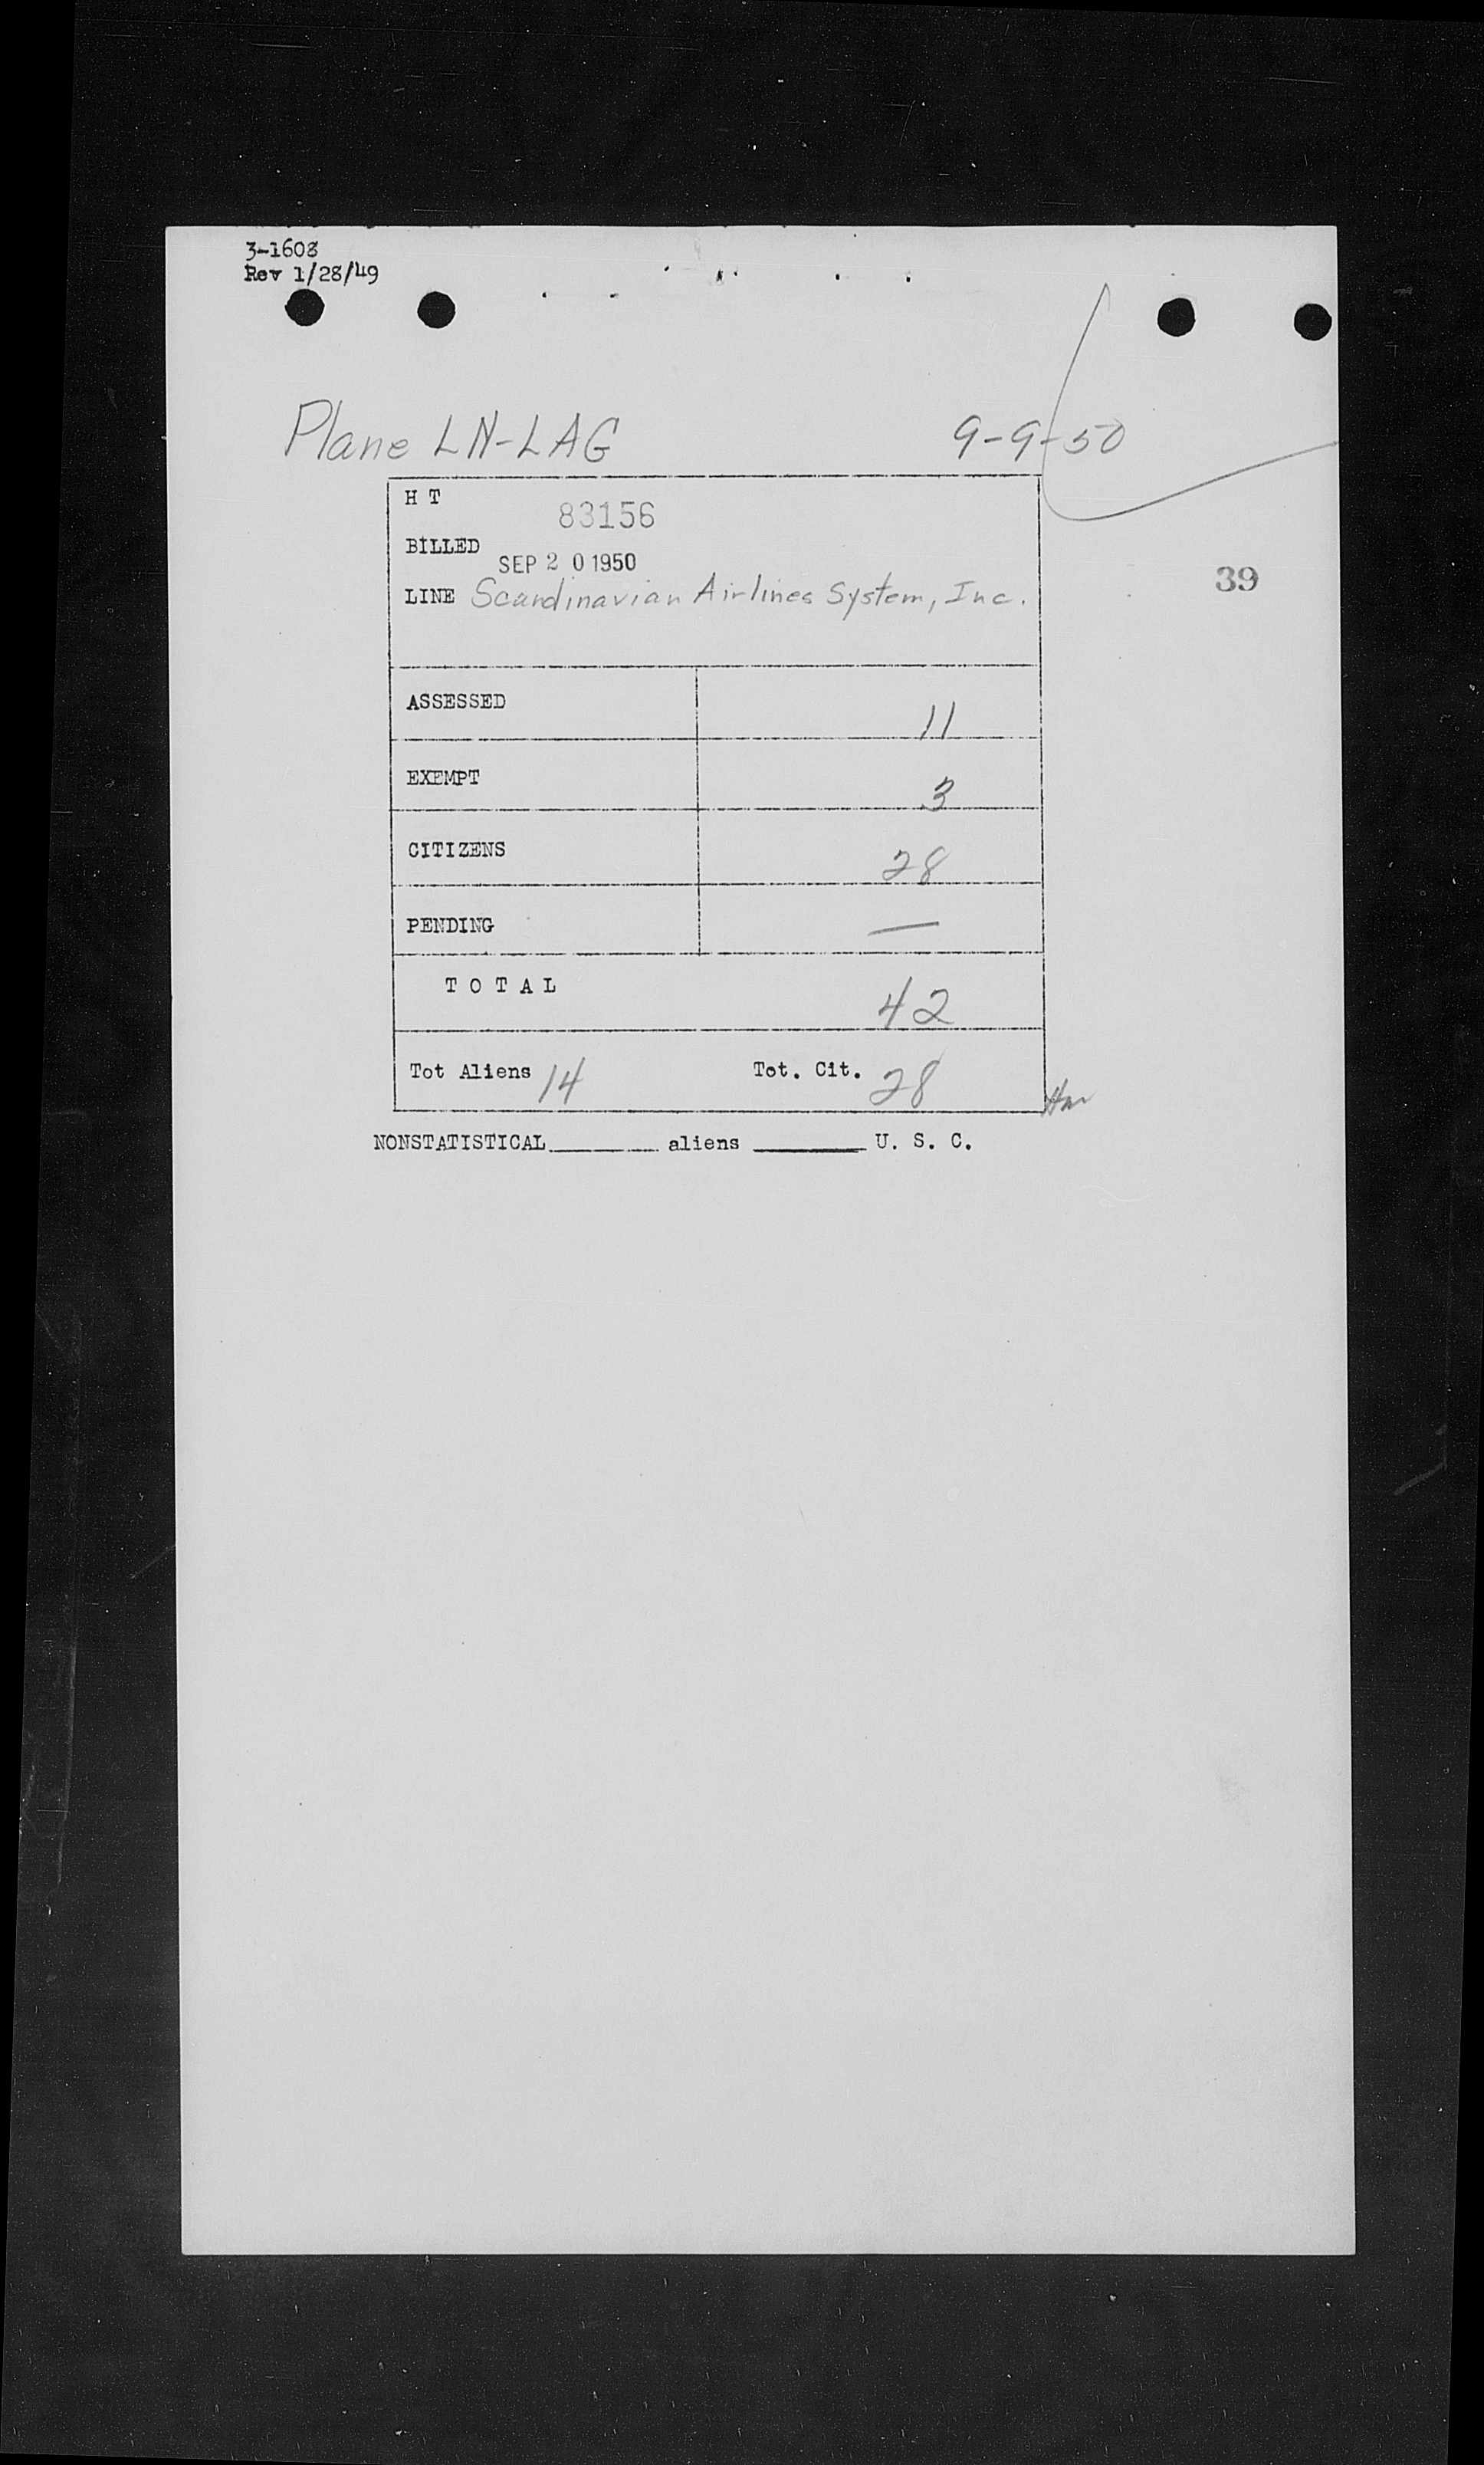 3-1608
Rev 1/28/49
Plane LN-LAG 9-9-50
H T
83156
BILLED
SEP 20 1950
LINE Scandinavian Airlines System, Inc.
39
ASSESSED 11
EXEMPT 3
CITIZENS 28
PENDING —
TOTAL 42
Tot Aliens 14 Tot. Cit. 28
NONSTATISTICAL______ aliens ______ U. S. C.